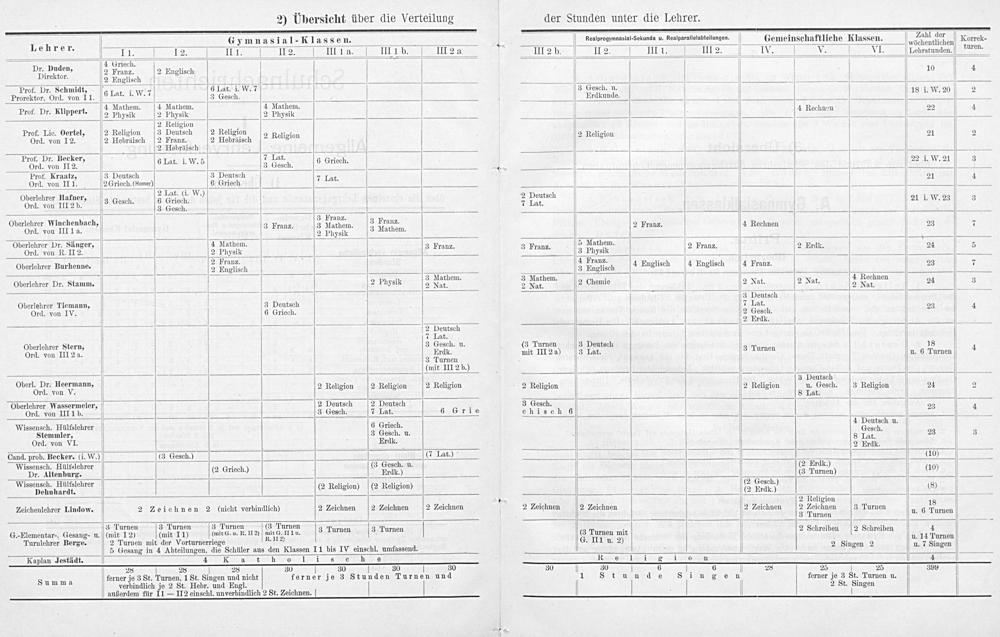 2) Übersicht über die Verteilung der Stunden unter die Lehrer.
Lehrer. Gymnasial-Klassen. Realprogymnasial-Sekunda u. Realparallelabteilungen. Gemeinschaftliche Klassen. Zahl der wöchentlichen Lehrstunden. Korrekturen.
I 1. I 2. II 1. II 2. III 1 a. III 1 b. III 2 a III 2 b. II 2. III 1. III 2. IV. V. VI.
Dr. Duden, 4 Griech.
Direktor. 2 Franz. 2 Englisch 10 4
2 Englisch
Prof. Dr. Schmidt, 6 Lat. i. W. 7 6 Lat. i. W. 7 3 Gesch. u. 18 i. W. 20 2
Prorektor. Ord. von I 1. 3 Gesch. Erdkunde.
Prof. Dr. Klippert. 4 Mathem. 4 Mathem. 4 Mathem. 4 Rechnen 22 4
2 Physik 2 Physik 2 Physik
Prof. Lic. Oertel, 2 Religion 2 Religion 2 Religion 2 Religion 2 Religion 21 2
Ord. von I 2. 2 Hebräisch 3 Deutsch 2 Hebräisch
2 Franz.
2 Hebräisch
Prof. Dr. Becker, 6 Lat. i. W. 5 7 Lat. 6 Griech. 22 i. W. 21 3
Ord. von II 2. 3 Gesch.
Prof. Kraatz, 3 Deutsch 3 Deutsch 7 Lat. 21 4
Ord. von II 1. 2 Griech. (Homer) 6 Griech.
Oberlehrer Hafner, 3 Gesch. 2 Lat. (i. W.) 2 Deutsch 21 i. W. 23 3
Ord. von III 2 b. 6 Griech. 7 Lat.
3 Gesch.
Oberlehrer Winchenbach, 3 Franz. 3 Franz. 3 Franz. 2 Franz. 4 Rechnen 23 7
Ord. von III 1 a. 3 Mathem. 3 Mathem.
2 Physik
Oberlehrer Dr. Sänger, 4 Mathem. 3 Franz. 3 Franz. 5 Mathem. 2 Franz. 2 Erdk. 24 5
Ord. von R. II 2. 2 Physik 3 Physik
Oberlehrer Burhenne. 2 Franz. 4 Franz. 4 Englisch 4 Englisch 4 Franz. 23 7
2 Englisch 3 Englisch
Oberlehrer Dr. Stamm. 2 Physik 3 Mathem. 3 Mathem. 2 Chemie 2 Nat. 2 Nat. 4 Rechnen 24 3
2 Nat. 2 Nat. 2 Nat.
Oberlehrer Tiemann, 3 Deutsch 3 Deutsch 23 4
Ord. von IV. 6 Griech. 7 Lat.
2 Gesch.
2 Erdk.
Oberlehrer Stern, 2 Deutsch (3 Turnen 3 Deutsch 3 Turnen 18 4
Ord. von III 2 a. 7 Lat. mit III 2 a) 3 Lat. u. 6 Turnen
3 Gesch. u.
Erdk.
3 Turnen
(mit III 2 b.)
Oberl. Dr. Heermann, 2 Religion 2 Religion 2 Religion 2 Religion 2 Religion 3 Deutsch 3 Religion 24 2
Ord. von V. u. Gesch.
8 Lat.
Oberlehrer Wassermeier, 2 Deutsch 2 Deutsch 6 Grie 3 Gesch. 23 4
Ord. von III 1 b. 3 Gesch. 7 Lat. chisch 6
Wissensch. Hülfslehrer 6 Griech. 4 Deutsch u. 23 3
Stemmler, 3 Gesch. u. Gesch.
Ord. von VI. Erdk. 8 Lat.
2 Erdk.
Cand. prob. Becker. (i. W.) (3 Gesch.) (7 Lat.) (10)
Wissensch. Hülfslehrer (2 Griech.) (3 Gesch. u. (2 Erdk.) (10)
Dr. Altenburg. Erdk.) (3 Turnen)
Wissensch. Hülfslehrer (2 Religion) (2 Religion) (2 Gesch.) (8)
Dehnhardt. (2 Erdk.)
Zeichenlehrer Lindow. 2 Zeichnen 2 (nicht verbindlich) 2 Zeichnen 2 Zeichnen 2 Zeichnen 2 Zeichnen 2 Zeichnen 2 Zeichnen 2 Religion 3 Turnen 18
2 Zeichnen u. 6 Turnen
3 Turnen
G.-Elementar-, Gesang- u. 3 Turnen 3 Turnen 3 Turnen (3 Turnen 3 Turnen 3 Turnen (3 Turnen mit 2 Schreiben 2 Schreiben 4
Turnlehrer Berge. (mit I 2) (mit I 1) (mit G. u. R. II 2) mit G. II 1 u. R. II 2) G. II 1 u. 2) 2 Singen 2 u. 14 Turnen
2 Turnen mit der Vorturnerriege u. 7 Singen
5 Gesang in 4 Abteilungen, die Schüler aus den Klassen I 1 bis IV einschl. umfassend.
Kaplan Jestädt. 4 Katholische Religion 4
Summa 28 28 28 30 30 30 30 30 30 6 6 28 25 25 399
ferner je 3 St. Turnen, 1 St. Singen und nicht ferner je 3 Stunden Turnen und 1 Stunde Singen ferner je 3 St. Turnen u.
verbindlich je 2 St. Hebr. und Engl. 2 St. Singen
außerdem für I 1 — II 2 einschl. unverbindlich 2 St. Zeichnen.